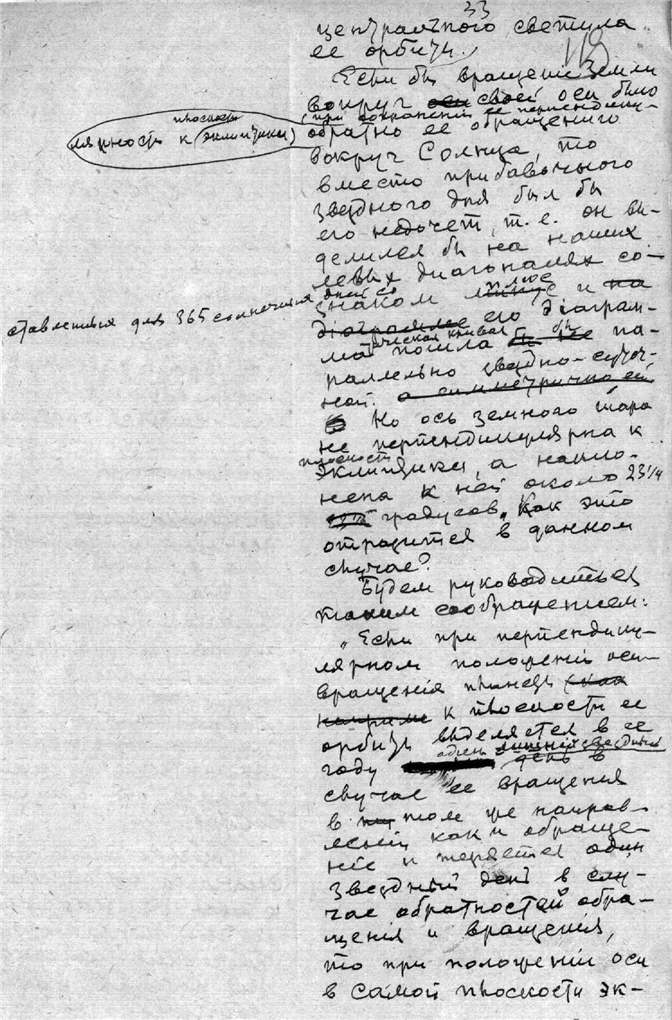 33
центрального светила
ее орбиты.
119
Если бы вращение Земли
вокруг оси своей оси было
(при сохранении ее перпендику-
лярность к плоскости (эклиптики)
обратно ее обращению
вокруг Солнца, то
вместо прибавочного
звездного дня был бы
его недочет, т. е. он вы-
делился бы на наших
левых диагоналях со
знаком и на
ставленная для 365 солнечных дней со
диаграмме его диаграм-
ма пошла бы ее па-
ческая кривая бы
раллельно звездно-суточ-
ной. а симметрично ей.
Но ось земного шара
не перпендикулярна к
плоскости
эклиптики, а накло-
нена к ней около 23 1/4
градусов. Как это
отразится в данном
случае?
Будем руководиться
таким соображением:
„Если при перпендику-
лярном положенiи оси
вращенiя планеты
к плоскости ее
орбиты выделяется в ее
году один лишний звездный день в
случае ее вращения
в том же направ-
ленiи как и обраще-
нiе и теряется один
звездный день в слу-
чае обратностей обра-
щенiя и вращенiя,
то при положенiи оси
в самой плоскости эк-